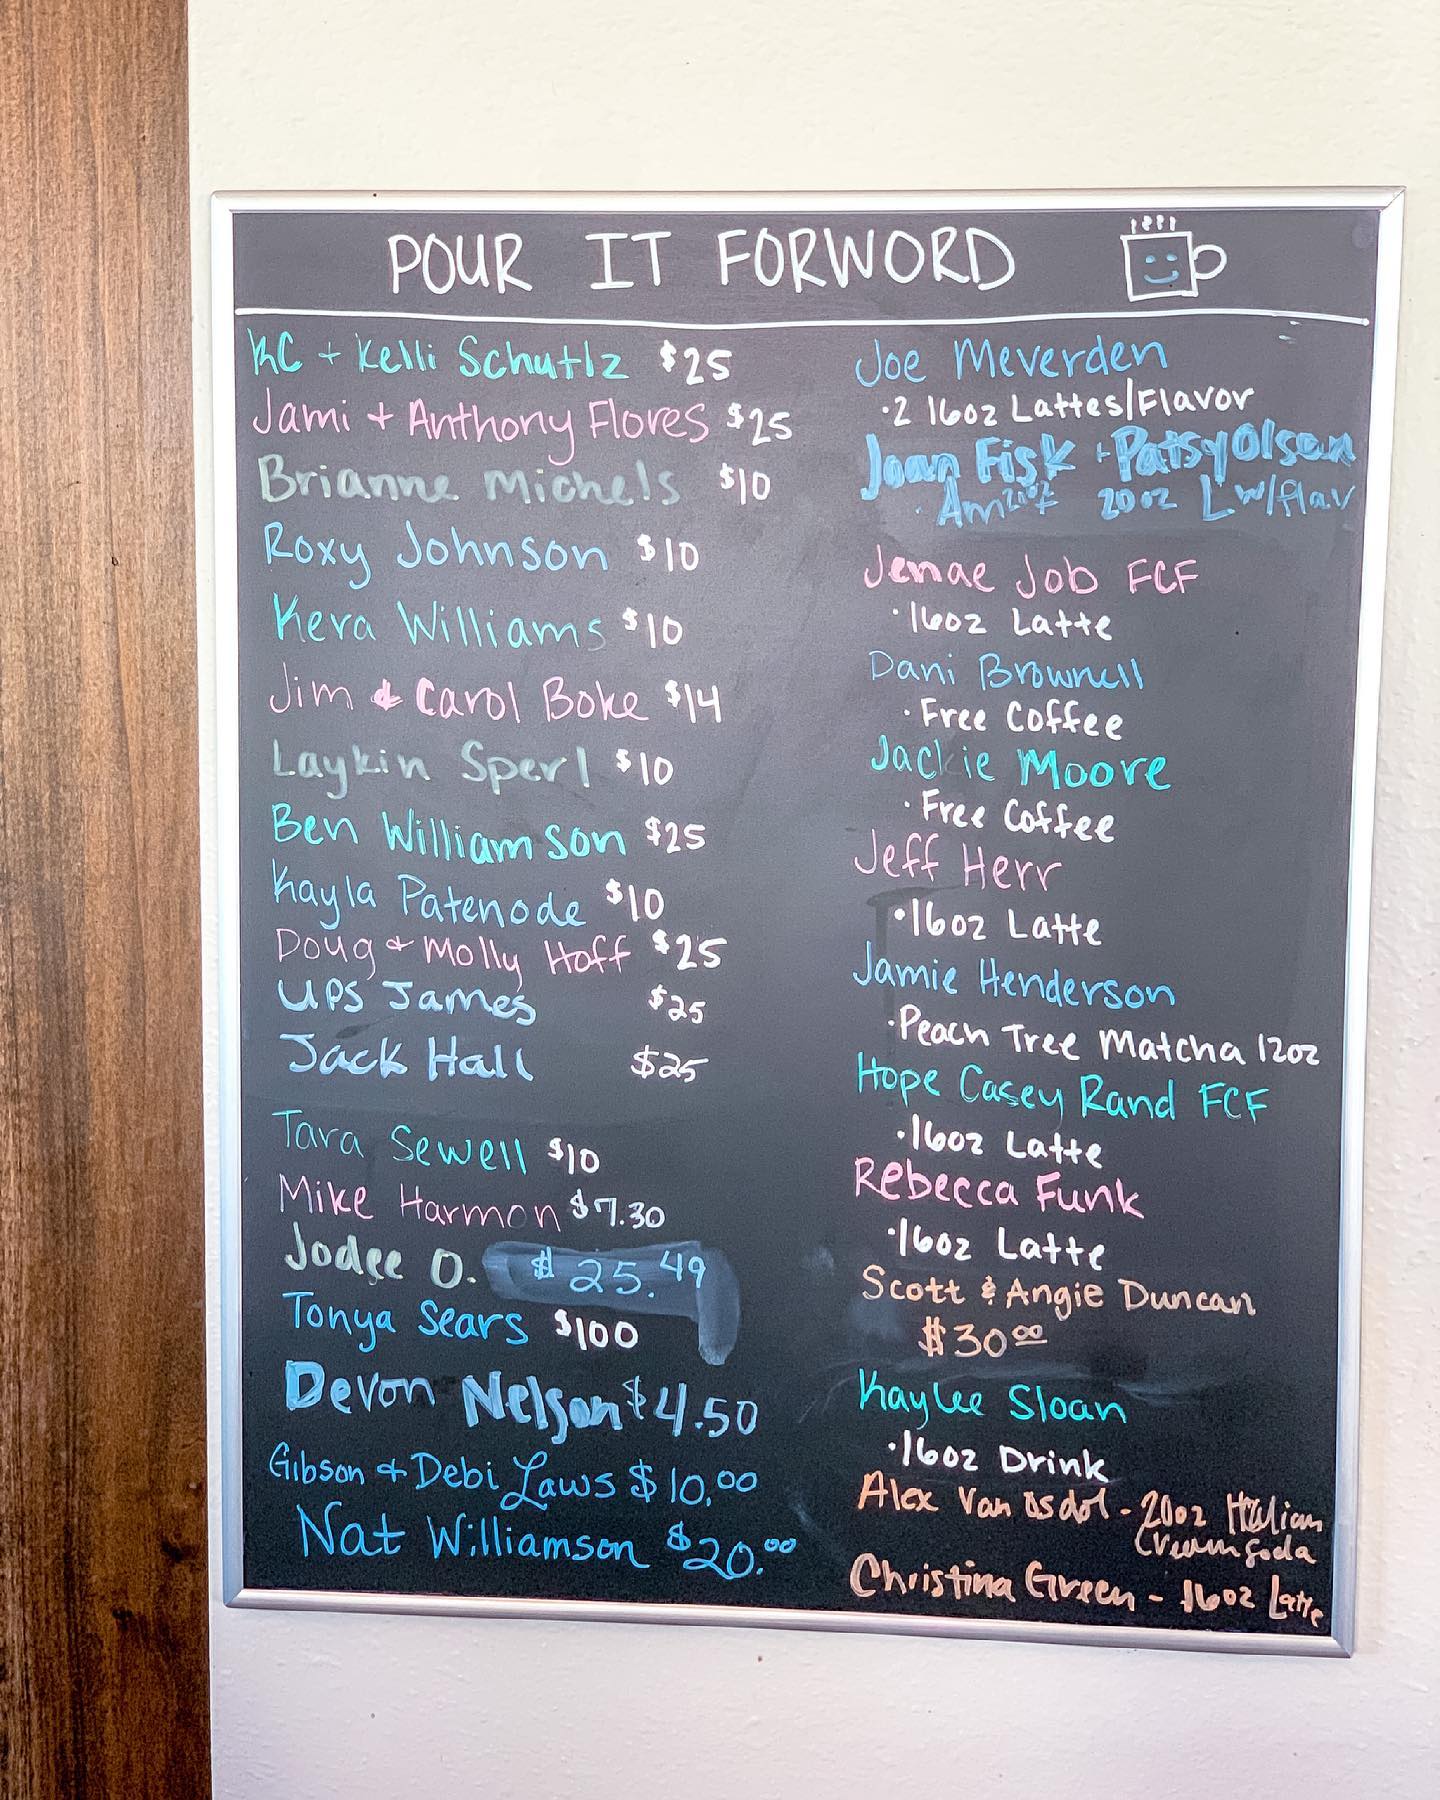 POUR IT FORWORD
KC + Kelli Schutlz $25
Jami + Anthony Flores $25
Brianne Michels $10
Roxy Johnson $10
Kera Williams $10
Jim & Carol Boke $14
Laykin Sperl $10
Ben Williamson $25
Kayla Patenode $10
Doug + Molly Hoff $25
UPS James $25
Jack Hall $25
Tara Sewell $10
Mike Harmon $7.30
Jodee O. $25.49
Tonya Sears $100
Devon Nelson $4.50
Gibson + Debi Laws $10.00
Nat Williamson $20.00
Joe Meverden
·2 16oz Lattes/Flavor
Joan Fisk + Patsy Olsen
· Am 20oz 20oz L w/flav
Jenae Job FCF
·16oz Latte
Dani Brownell
·Free Coffee
Jackie Moore
·Free Coffee
Jeff Herr
·16oz Latte
Jamie Henderson
·Peach Tree Matcha 12oz
Hope Casey Rand FCF
·16oz Latte
Rebecca Funk
·16oz Latte
Scott & Angie Duncan
$30.00
Kaylee Sloan
·16oz Drink
Alex Van Osdol - 20oz Italian
Cream soda
Christina Green - 16oz Latte